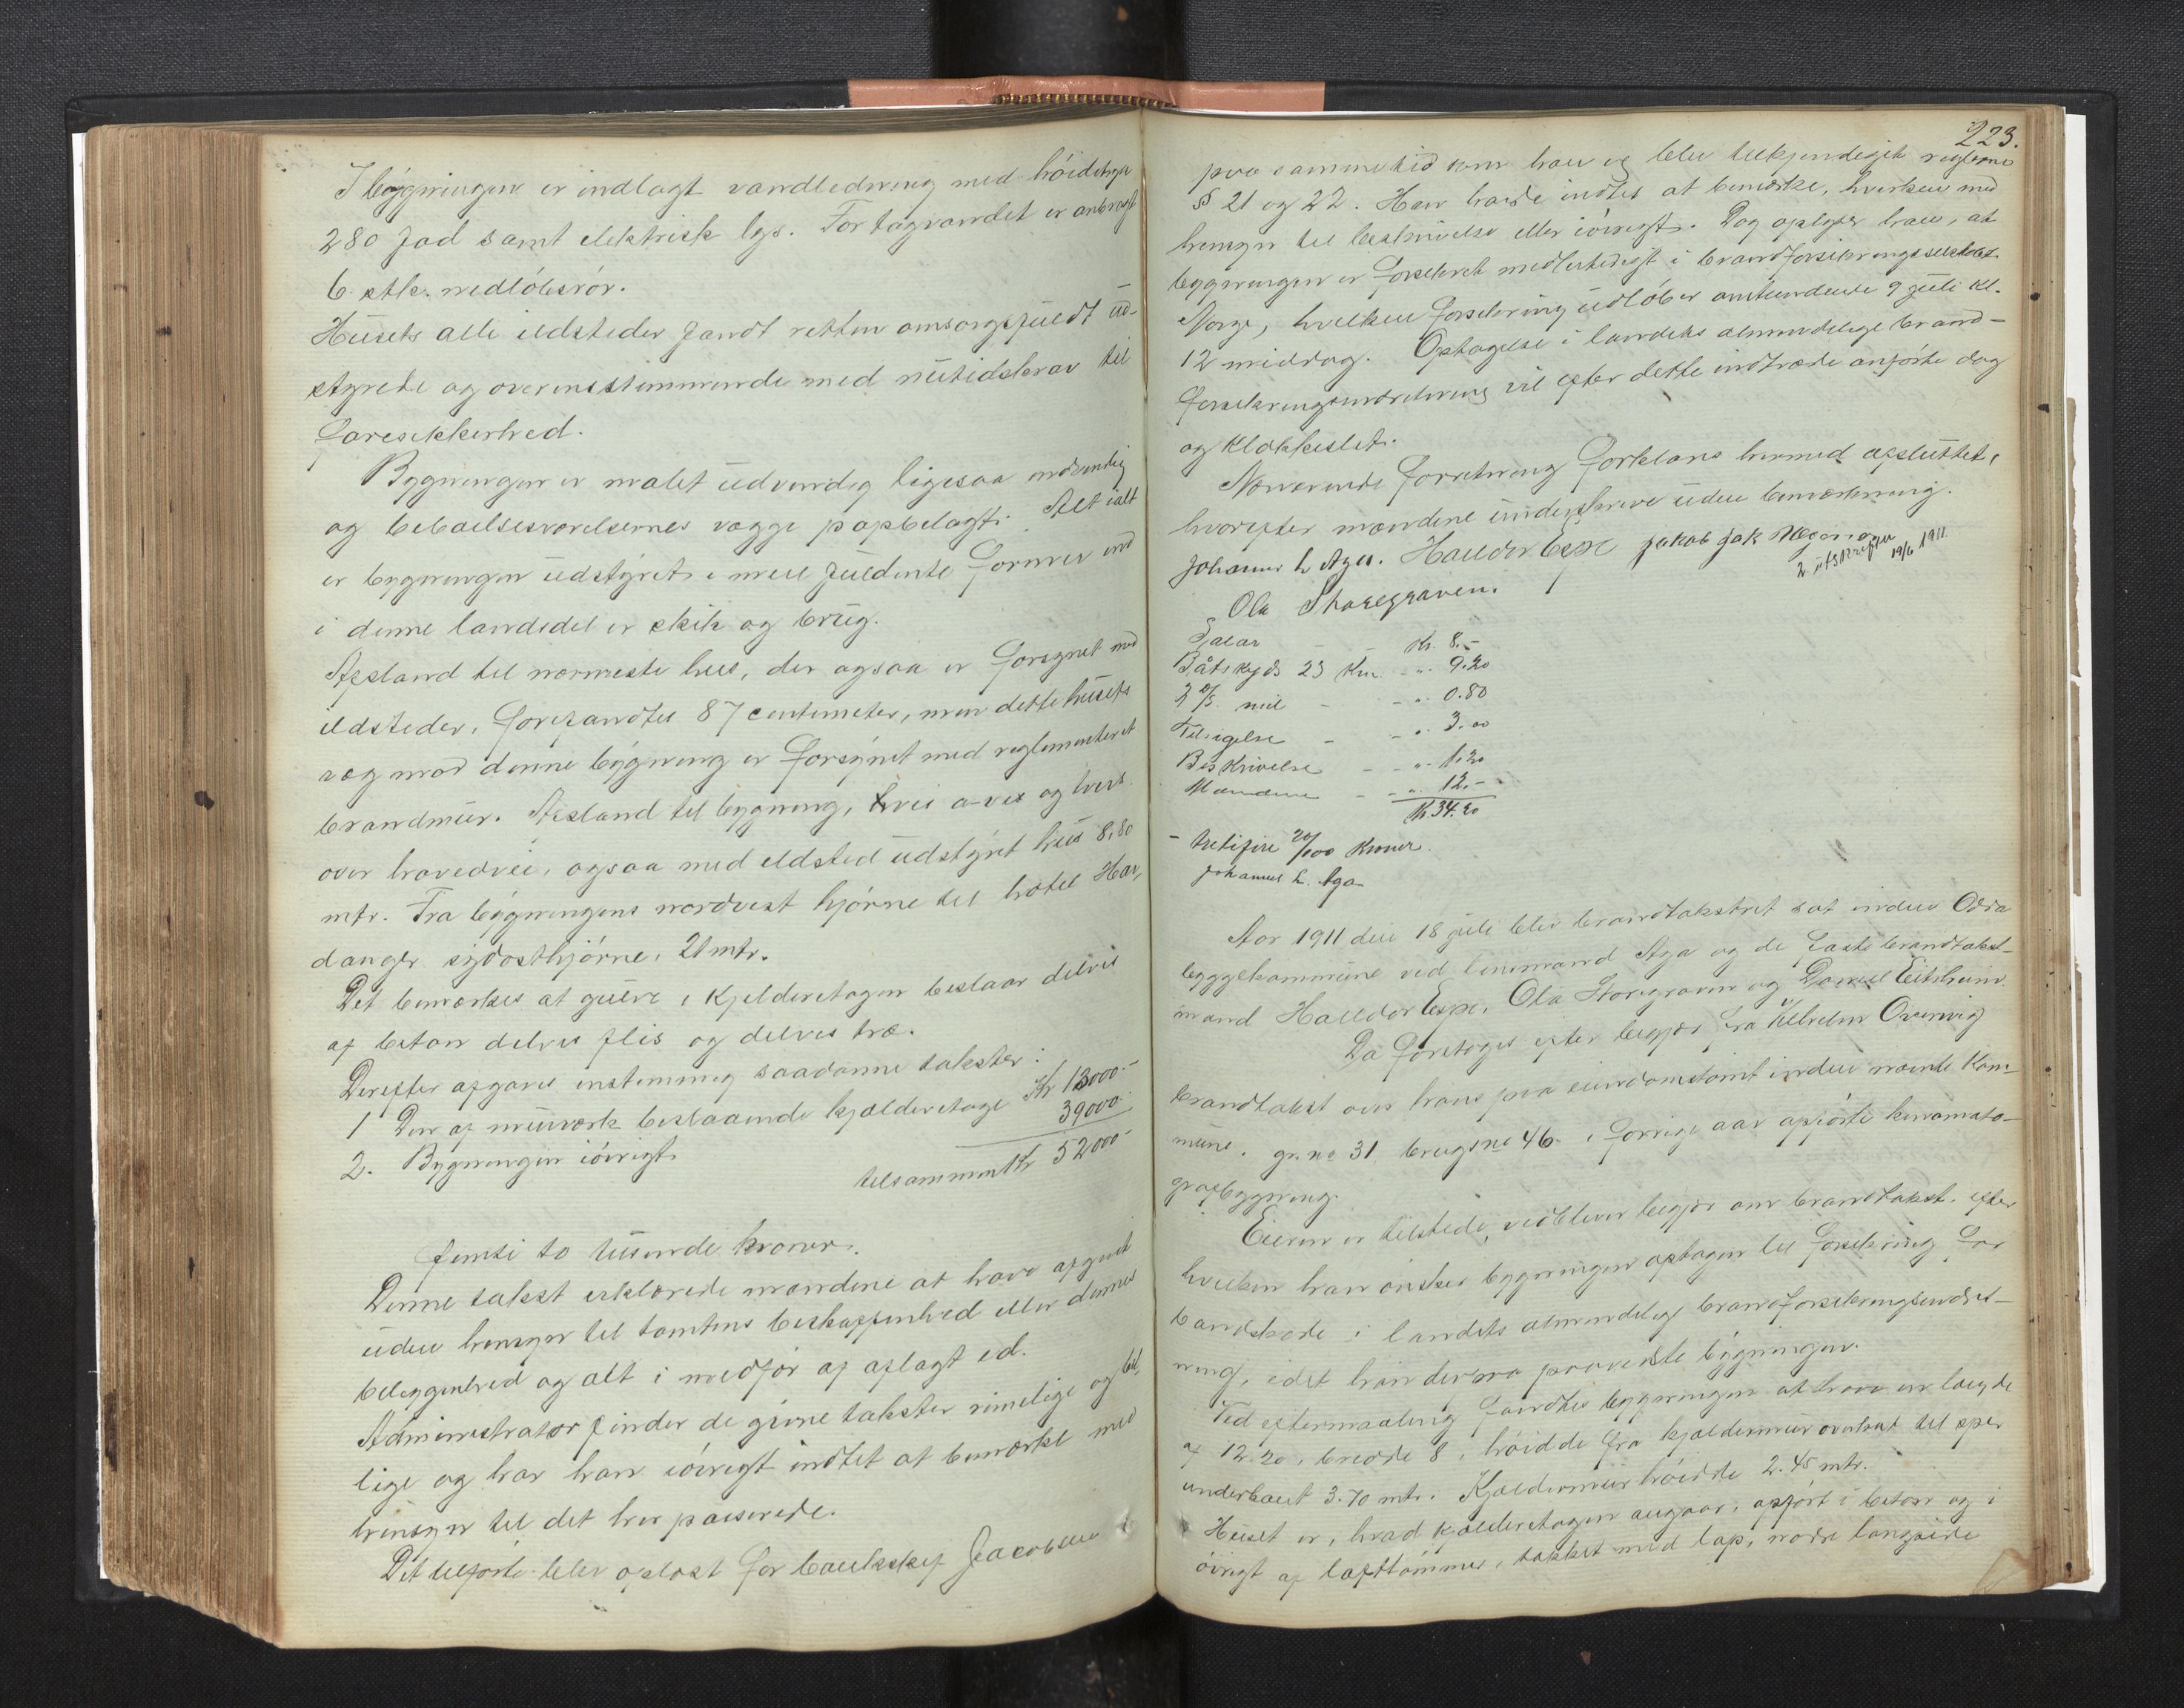 I bygningen er indlagt vandledning med höidetryk
280 fod samt elektrisk lys. For tagvandet er anbragt
6 stk. nedlöbsrör.
Husets alle ildsteder fandt retten omsorgsfuldt ud-
styrede og overensstemmende med nutidskrav til
faresikkerhed.
Bygningen er malet udvendig ligesaa indvendig
og beboelsesværelsernes vægge papbelagt. Alt ialt
er bygningen udstyret i mest fuldente former end
i denne landsdel er skik og brug.
Afstand til nærmeste hus, der ogsaa er forsynet med
ildsteder, forefandtes 87 centimeter, men dette husets
væg mod denne bygning er forsynet med reglementeret
brandmur. Afstand til bygning, hvis a-vis og tvers
over hovedvei, ogsaa med ildsted udstyret hus 8,80
mtr. Fra bygningens nordvest hjörne til hotel Har,
danger sydosthjörne, 21 mtr.
Det bemærkes at gulve i kjelderetagen bestaar delvis
af beton delvis flis og delvis træ.
Derefter afgaves enstemmig saadanne takster:
1 Den af murværk bestaaende kjælderetage Kr 13000.-
2. Bygningen iövrigt 39000.
tilsammen Kr 52000-
femti to tusende kroner.
Denne takst erklærede mændene at have afgivet
uden hensyn til tomtens beskaffenhed eller dennes
beliggenhed og alt i medför af aflagt ed.
Administrator finder de givne takster rimelige og bil,
lige og har han iövrigt indtet at bemærke med
hensyn til det her passerede.
Det tilförte blev oplæst for bankchef Jacobsen
223.
paa sammetid som han og blev tilkjendegit reglerne
§ 21 og 22. Han havde indtet at bemærke, hverken med
hensyn til beskrivelse eller iövrigt. Dog oplyser han, at
bygningen er forsikret midlertidigt i brandforsikringsselskabet
Norge, hvilken forsikring udlöber anstundende 9 juli kl.
12 middag. Optagelse i landets almindelige brand-
forsikringsindretning vil efter dette indtræde anförte dag
og klokkeslet.
Nærværende forretning forklares hermed afsluttet,
hvorefter mændene underskrive uden bemærkning.
Johannes L. Aga. Halldor Espe Jakob Jak
2 utskrifter 19/6 1911.
Ola Skaregraven.
Salær - - Kr. 8.-
Båtskyds 23 Km. - " 9.20
2 0/5 mil - - " 0.80
Tilsigelse - - " 3.00
Beskrivelse - - " 1.20
Mændene - - " 12.-
Kr. 34.20
- tretifire 20/100 Kroner.
Johannes L. Aga
Aar 1911 den 18 juli blev brandtakstret sat inden Odda
byggekommune ved lensmand Aga og de faste brandtakst-
mænd Halldor Espe, Ola Skaregraven og Daniel Eitrheim.
Da foretoges efter begjær fra Vilhelm
brandtakst over hans paa eiendomstomt inden nævnte kom-
mune. gr.no 31, brugsno 46 i forrige aar opförte kinomato-
grafbygning.
Eieren er tilstede, vedbliver begjær om brandtakst, efter
hvilken han önsker bygningen optagen til forsikring for
brandskade i landets almindelig brandforsikringsindret-
ning, idet han derpaa paaviste bygningen.
Ved eftermaaling fandtes bygningen at have en længde
af 12.20, bredde 8, höidde fra kjældermur overkant til sper
underkant 3.70 mtr. Kjældermur höidde 2.45 mtr.
Huset er, hvad kjælderetagen angaar, opfört i beton og i
övrigt af lafttömmer, tækket med tap, nordre langside